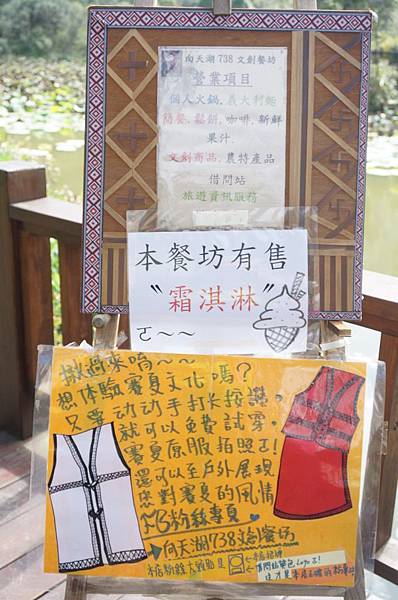 向天湖738文創餐坊
營業項目
個人火鍋.義大利麵
簡餐.鬆餅.咖啡.新鮮
果汁.
文創商品.農特產品
借問站
旅遊資訊服務
本餐坊有售
"霜淇淋"
ㄛ~~
想體驗賽夏文化嗎?
只要動動手打卡按讚,
就可以免費試穿,
賽夏原服拍照ㄛ!
還可以至戶外展現
您對賽夏的風情
FB粉絲專頁
向天湖738文創餐坊